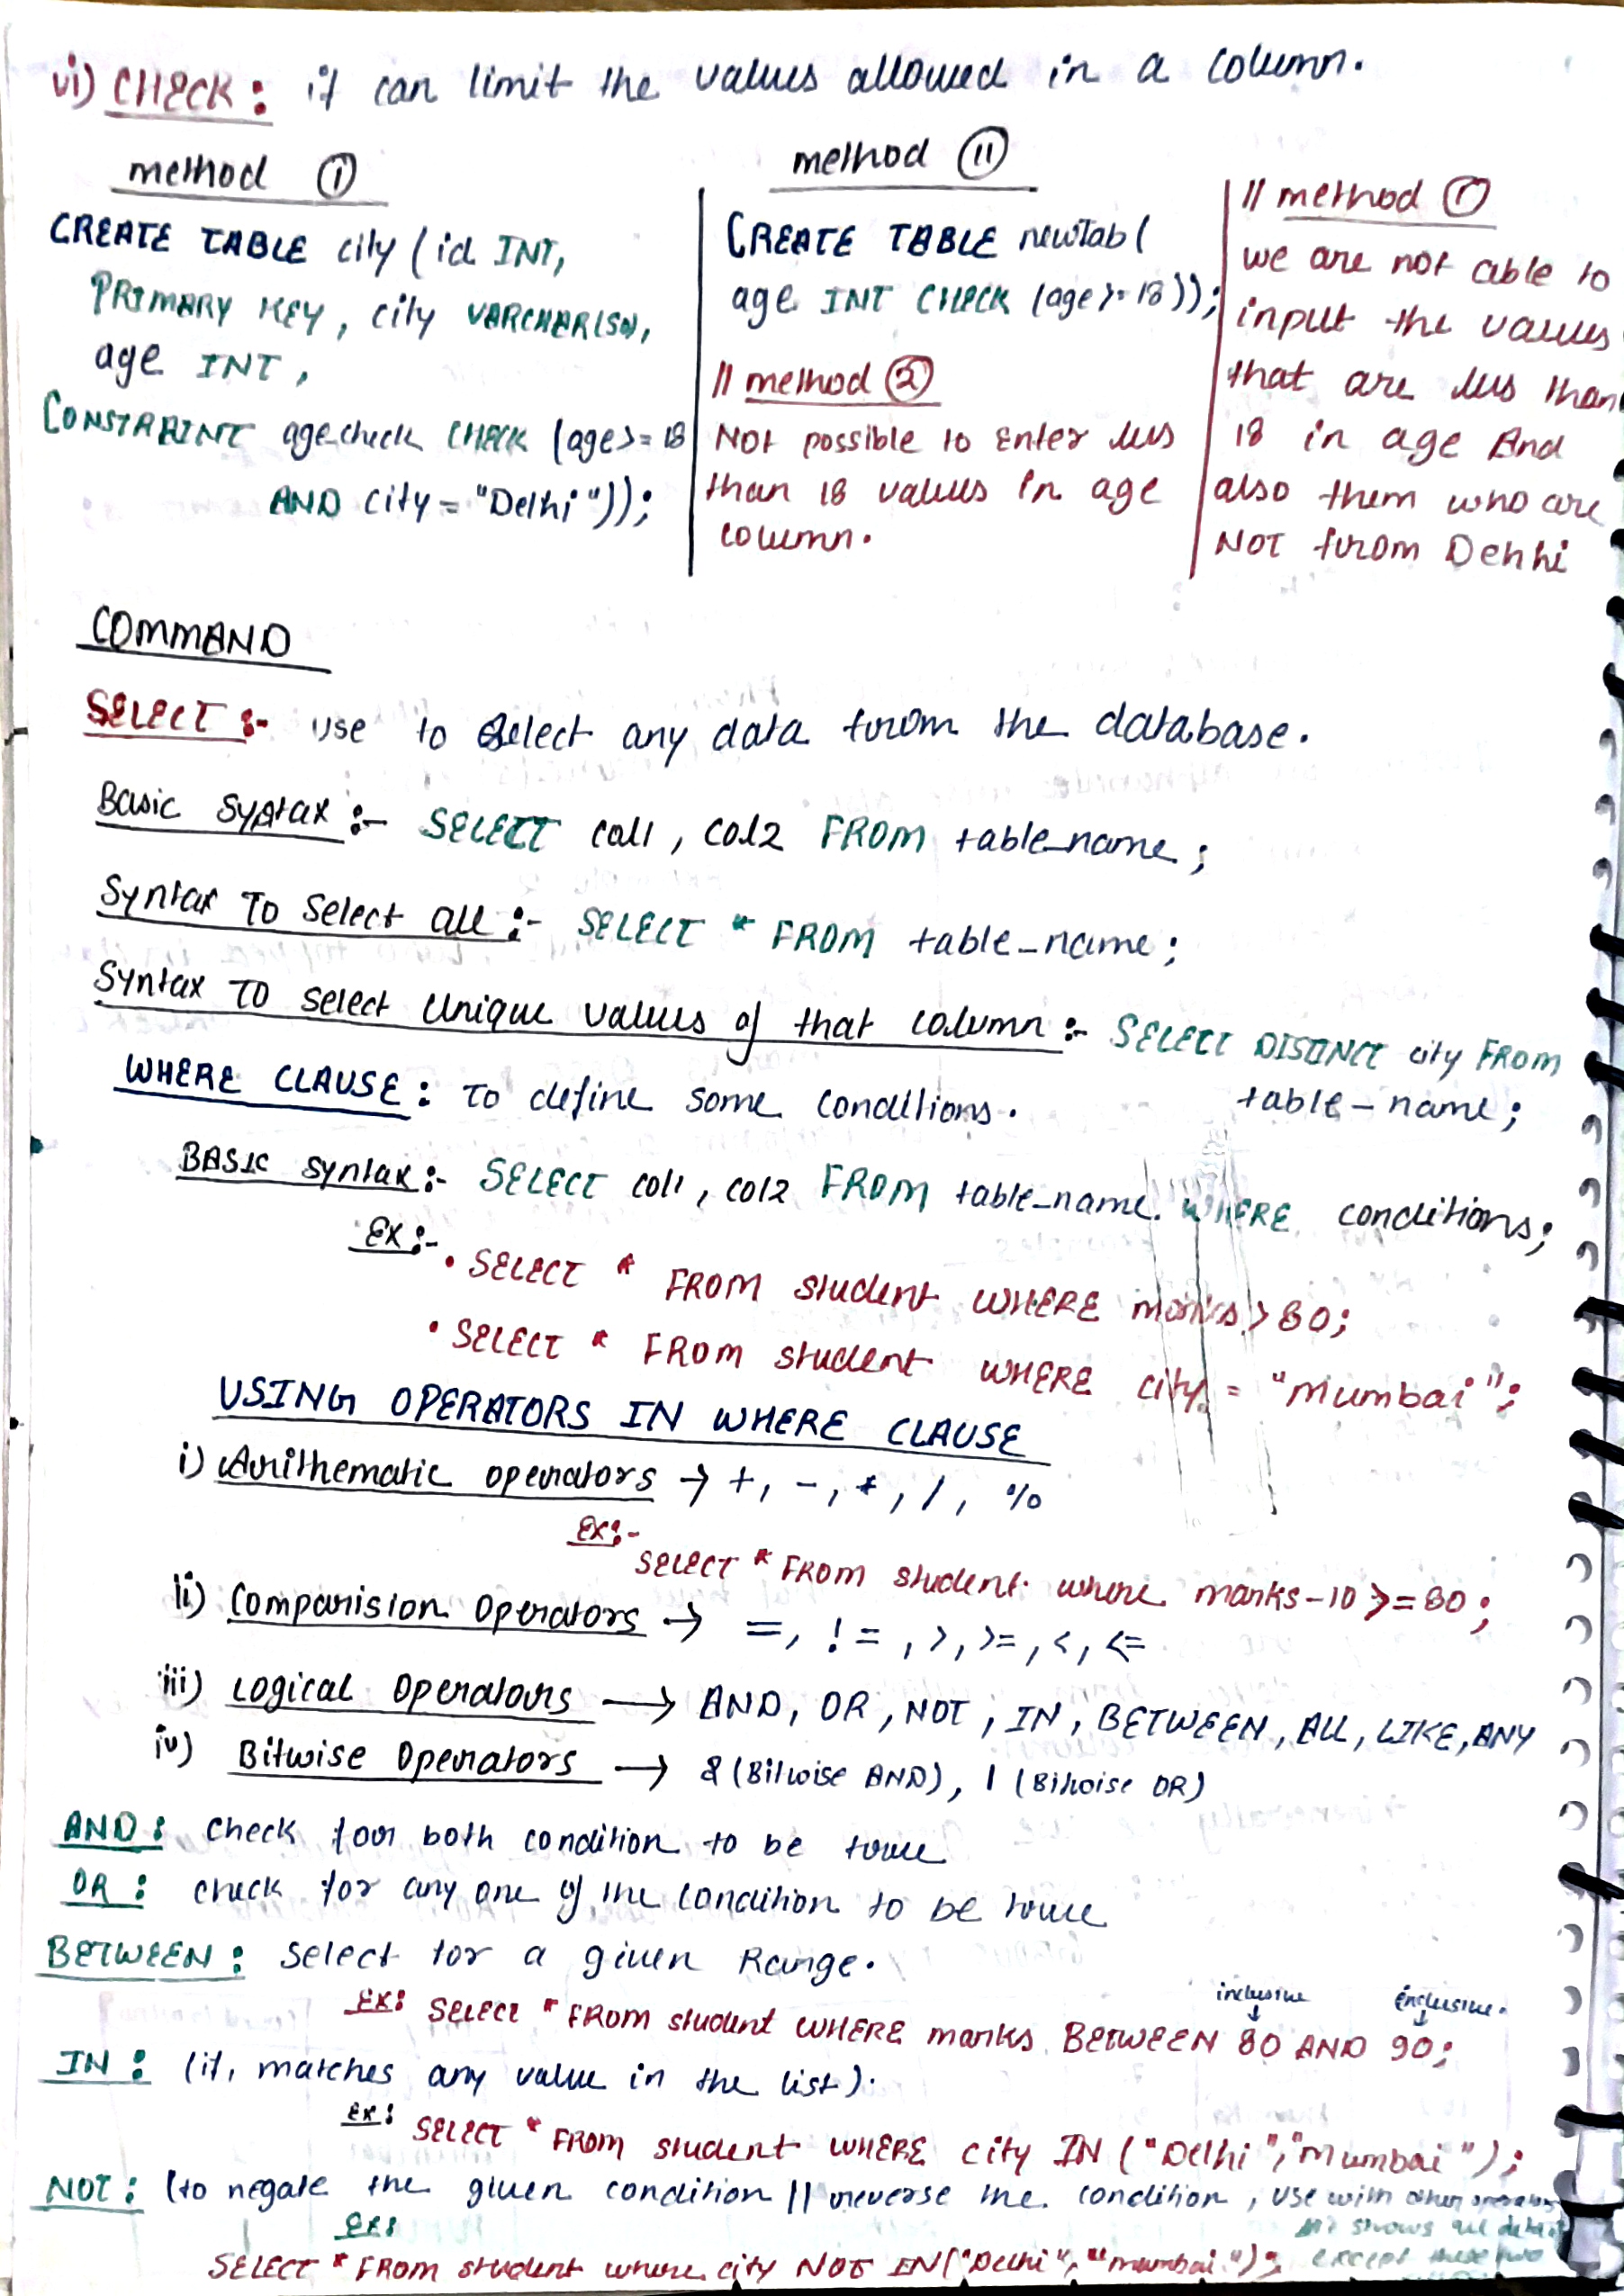 vi) CHECK : it can limit the values allowed in a column.
method ①
CREATE TABLE city ( id INT,
PRIMARY KEY, city VARCHAR(50),
age INT,
CONSTRAINT agecheck CHECK (age>=18
AND city = "Delhi"));
method ⑪
CREATE TABLE newTab(
age INT CHECK (age>=18));
// method ②
NOT possible to enter less
than 18 values in age
column.
// method ①
we are not able to
input the values
that are less than
18 in age And
also them who are
NOT from Dehhi
COMMAND
SELECT :- use to select any data from the database.
Basic Syntax :- SELECT col1, col2 FROM table_name;
Syntax To Select all :- SELECT * FROM table_name;
Syntax TO select Unique values of that column :- SELECT DISTINCT city FROM
table_name;
WHERE CLAUSE : To define some conditions.
BASIC syntax :- SELECT col1, col2 FROM table_name. WHERE conditions;
Ex :-
• SELECT * FROM student WHERE marks > 80;
• SELECT * FROM student WHERE city = "Mumbai";
USING OPERATORS IN WHERE CLAUSE
i) Arithematic operators → +, -, *, /, %
Ex:-
SELECT * FROM student where marks-10 >= 80;
ii) Comparision Operators → =, !=, >, >=, <, <=
iii) Logical Operators → AND, OR, NOT, IN, BETWEEN, ALL, LIKE, ANY
iv) Bitwise Operators → & (Bitwise AND), | (Bitwise OR)
AND : check for both condition to be true
OR : check for any one of the condition to be true
BETWEEN : Select for a given Range.
inclusive inclusive.
Ex: SELECT * FROM student WHERE marks BETWEEN 80 AND 90;
IN : (it, matches any value in the list).
Ex: SELECT * FROM student WHERE city IN ("Delhi", "Mumbai");
NOT : (to negate the given condition || reverse the condition, use with other operators
shows all data
Ex:
except these two
SELECT * FROM student where city NOT IN("Delhi", "mumbai");